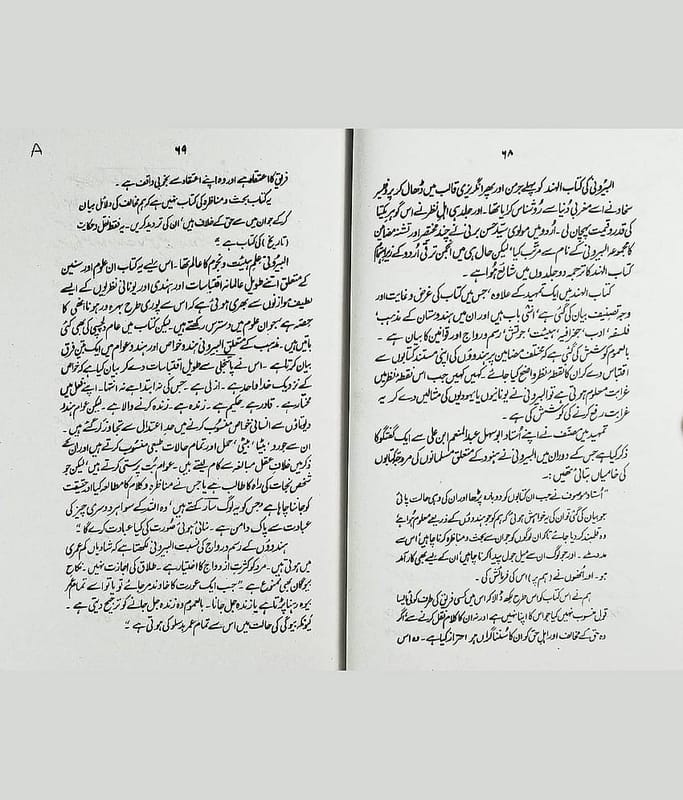 ۶۸
البیرونی کی کتاب الہند کو پہلے جرمن اور پھر انگریزی قالب میں ڈھال کر پروفیسر
سخاؤ نے اسے مغربی دُنیا سے رُوشناس کرایا تھا۔ اور جلد ہی اہلِ نظر نے اس گوہرِ یکتا
کی قدر و قیمت پہچان لی۔ اُردو میں مولوی سید حسن برنی نے چند مختصر اور تشنہ مضامین
کا مجموعہ البیرونی کے نام سے مرتّب کیا لیکن حال ہی میں انجمن ترقی اُردو کے زیرِ اہتمام
کتاب الہند کا ترجمہ دو جلدوں میں شائع ہوا ہے۔
کتاب الہند میں ایک تمہید کے علاوہ، جس میں کتاب کی غرض و غایت اور
وجہِ تصنیف بیان کی گئی ہے، اسّی باب ہیں اور ان میں ہندوستان کے مذہب،
فلسفہ، ادب، جغرافیہ، ہیئت، جوتش، رسم و رواج اور قوانین کا بیان ہے۔
بالعموم کوشش کی گئی ہے کہ مختلف مضامین پر ہندوؤں کی اپنی مستند کتابوں سے
اقتباس دے کر ان کا نقطۂ نظر واضح کیا جائے۔ کہیں کہیں جب اس نقطۂ نظر میں
غرابت معلوم ہوتی ہے تو البیرونی نے یونانیوں یا یہودیوں کی مثالیں دے کر یہ
غرابت رفع کرنے کی کوشش کی ہے۔
تمہید میں مصنّف نے اپنے اُستاد ابو سہل عبد المنعم ابن علی سے ایک گفتگو کا
ذکر کیا ہے جس کے دوران میں البیرونی نے ہنود کے متعلق مسلمانوں کی مروجہ کتابوں
کی خامیاں بتائی تھیں:۔
"اُستاد موصوف نے جب ان کتابوں کو دوبارہ پڑھا اور ان کی وہی حالت پائی
جو بیان کی گئی تو ان کی یہ خواہش ہوئی کہ ہم کو جو ہندوؤں کے ذریعے معلوم ہوا ہے
وہ قلمبند کر دیا جائے تاکہ ان لوگوں کو جو ان سے بحث و مناظرہ کرنا چاہیں اس سے
مدد ملے۔ اور جو لوگ ان سے میل جول پیدا کرنا چاہیں ان کے لیے بھی کارآمد
ہو۔ اور اُنھوں نے (ہم پر) اس کی فرمائش کی۔
ہم نے اس کتاب کو اس طرح لکھ ڈالا کہ اس میں کسی فریق کی طرف کوئی ایسا
قول منسوب نہیں کیا جو اس کا اپنا نہیں ہے اور نہ ان کا کلام نقل کرنے سے اگر
وہ حق کے مخالف اور اہلِ حق کو ان کا سُننا گراں ہو احتراز کیا ہے۔ وہ اس
A
۶۹
فریق کا اعتقاد ہے اور وہ اپنے اعتقاد سے بخوبی واقف ہے۔
یہ کتاب بحث و مناظرہ کی کتاب نہیں ہے کہ ہم مخالف کی دلائل بیان
کر کے جو ان میں سے حق کے خلاف ہیں، ان کی تردید کریں۔ یہ فقط نقل و حکایت
(تاریخ) کی کتاب ہے"
البیرونی علمِ ہیئت و نجوم کا عالم تھا۔ اس لیے یہ کتاب ان علوم اور سنین
کے متعلق اتنے طویل عالمانہ اقتباسات اور ہندی اور یونانی نظریوں کے ایسے
لطیف موازنوں سے بھری ہوئی ہے کہ اس سے پوری طرح بہرہ ور ہونا انھی کا
حصّہ ہے جو ان علوم میں دسترس رکھتے ہیں۔ لیکن کتاب میں عام دلچسپی کی بھی کئی
باتیں ہیں۔ مذہب کے متعلق البیرونی ہندو خواص اور ہندو عوام میں ایک بیّن فرق
بیان کرتا ہے۔ اس نے پاتنجلی سے طویل اقتباسات دے کر بیان کیا ہے کہ خواص
کے نزدیک خدا واحد ہے۔ ازلی ہے۔ جس کی نہ ابتدا ہے نہ انتہا۔ اپنے فعل میں
مختار ہے۔ قادر ہے۔ حکیم ہے۔ زندہ ہے۔ زندہ کرنے والا ہے۔ لیکن عوام ہندو
دیوتاؤں سے انسانی خواص منسوب کرنے میں حدِ اعتدال سے تجاوز کر گئے ہیں۔
ان سے جورو، بیٹا، بیٹی، حمل اور تمام حالاتِ طبعی منسوب کرتے ہیں اور ان کے
ذکر میں خلافِ عقل مبالغہ سے کام لیتے ہیں۔ عوام بُت پرستی کرتے ہیں، لیکن جو
شخص نجات کی راہ کا طالب ہے یا جس نے مناظرہ و کلام کا مطالعہ کیا اور حقیقت
کو جاننا چاہا ہے (جس کو یہ لوگ سار کہتے ہیں) وہ اللہ کے سوا ہر دوسری چیز کی
عبادت سے پاک دامن ہے۔ بنائی ہوئی صُورت کی کیا عبادت کرے گا"
ہندوؤں کے رسم و رواج کی نسبت البیرونی لکھتا ہے کہ شادیاں کم عمری
میں ہوتی ہیں۔ مرد کو کثرتِ ازدواج کا اختیار ہے۔ طلاق کی اجازت نہیں۔ نکاحِ
بیوگان بھی ممنوع ہے۔ "جب ایک عورت کا خاوند مر جائے تو یا تو اسے تمام عمر
بیوہ رہنا پڑتا ہے یا زندہ جل جانا۔ بالعموم وہ زندہ جل جانے کو ترجیح دیتی ہے۔
کیونکہ بیوگی کی حالت میں اس سے تمام عمر بدسلوکی ہوتی ہے"